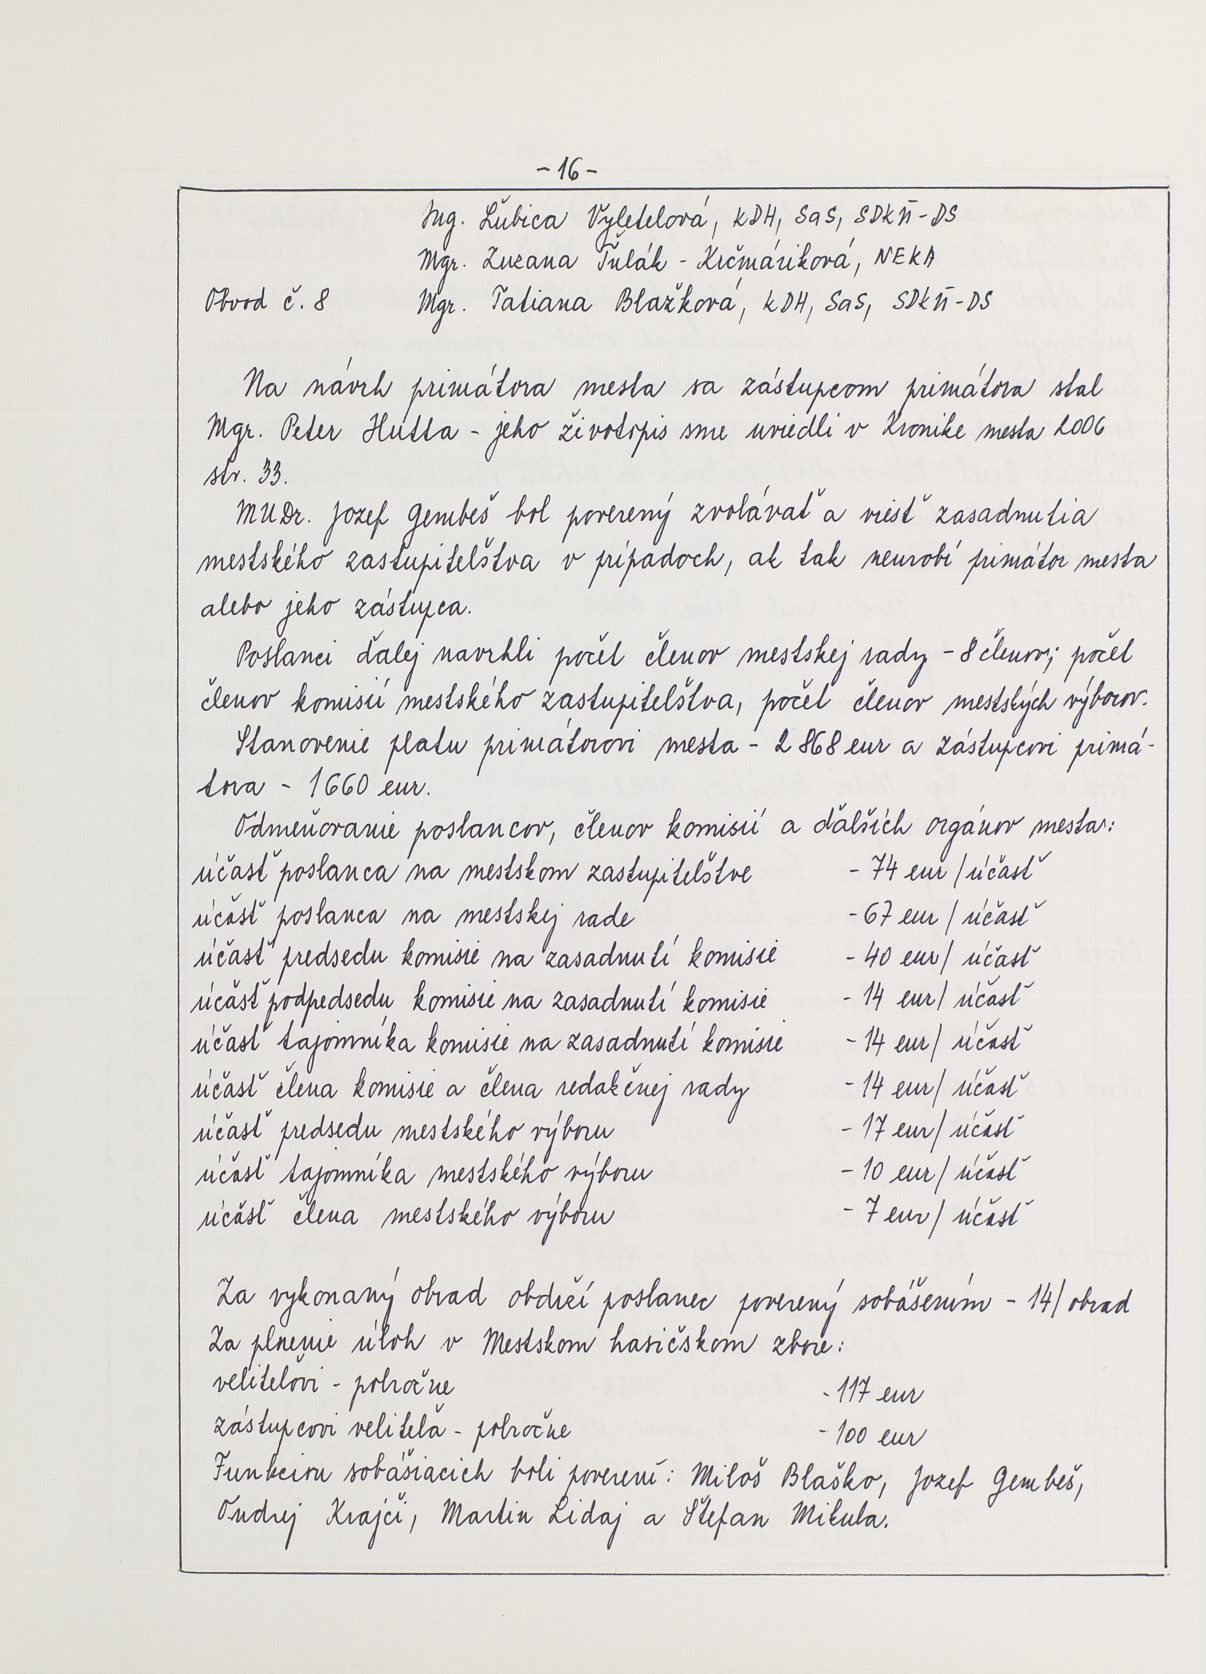 - 16 -
Ing. Ľubica Vyletelová, KDH, SaS, SDKÚ-DS
Mgr. Zuzana Ťulák - Krčmáriková, NEKA
Obvod č. 8 Mgr. Tatiana Blažková, KDH, SaS, SDKÚ-DS
Na návrh primátora mesta sa zástupcom primátora stal
Mgr. Peter Hutta - jeho životopis sme uviedli v Kronike mesta 2006
str. 33.
MUDr. Jozef Gembeš bol poverený zvolávať a viesť zasadnutia
mestského zastupiteľstva v prípadoch, ak tak neurobí primátor mesta
alebo jeho zástupca.
Poslanci ďalej navrhli počet členov mestskej rady - 8 členov; počet
členov komisií mestského zastupiteľstva, počet členov mestských výborov.
Stanovenie platu primátorovi mesta - 2 868 eur a zástupcovi primá-
tora - 1660 eur.
Odmeňovanie poslancov, členov komisií a ďalších orgánov mesta:
účasť poslanca na mestskom zastupiteľstve - 74 eur / účasť
účasť poslanca na mestskej rade - 67 eur / účasť
účasť predsedu komisie na zasadnutí komisie - 40 eur / účasť
účasť podpedsedu komisie na zasadnutí komisie - 14 eur / účasť
účasť tajomníka komisie na zasadnutí komisie - 14 eur / účasť
účasť člena komisie a člena redakčnej rady - 14 eur / účasť
účasť predsedu mestského výboru - 17 eur / účasť
účasť tajomníka mestského výboru - 10 eur / účasť
účasť člena mestského výboru - 7 eur / účasť
Za vykonaný obrad obdrží poslanec poverený sobášením - 14 / obrad
Za plnenie úloh v Mestskom hasičskom zbore:
veliteľovi - polročne - 117 eur
zástupcovi veliteľa - polročne - 100 eur
Funkciou sobášiacich boli poverení: Miloš Blaško, Jozef Gembeš,
Ondrej Krajči, Martin Lidaj a Štefan Mikula.